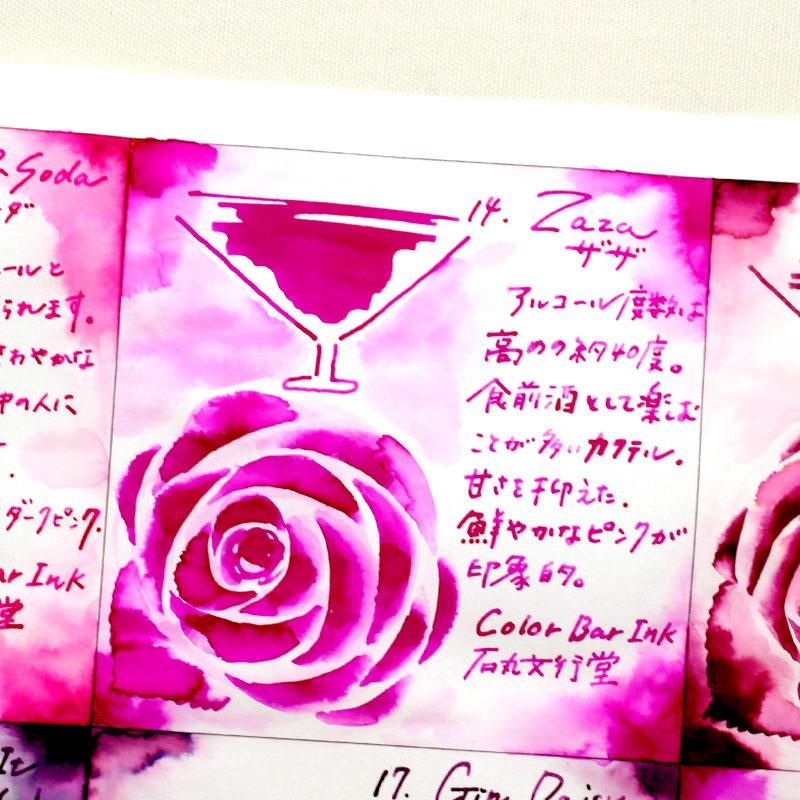 Soda
ーダ
ールと
られます。
さわやかな
の人に
ダークピンク.
ar Ink
堂
14. Zaza
ザザ
アルコール度数は
高めの約40度。
食前酒として楽しむ
ことが多いカクテル.
甘さを抑えた.
鮮やかなピンクが
印象的。
Color Bar Ink
石丸文行堂
It
17. Gin Daisy